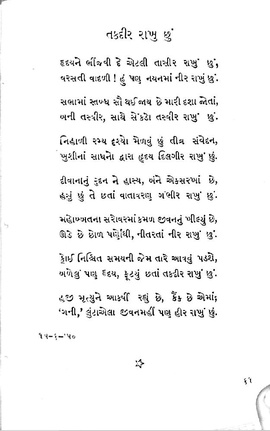 તકદીર રાખુ છું
હૃદયને ભીંજવી દે એટલી તાસીર રાખું છું.
વરસતી વાદળી ! હું પણ નયનમાં નીર રાખું છું.
સભામાં સ્તબ્ધ સૌ થઈ જાય છે મારી દશા જોતાં,
બની તસ્વીર, સાથે સેંકડો તસ્વીર રાખું છું.
નિહાળી રમ્ય દૃશ્યો મેળવું છું તીવ્ર સંવેદન,
ખુશીનાં સાધનો દ્વારા હૃદય દિલગીર રાખું છું.
દીવાનાનું રુદન ને હાસ્ય, બંને એકસરખાં છે,
હસું છું તે છતાં વાતાવરણ ગંભીર રાખું છું.
મહોબ્બતના સરોવરમાં કમળ જીવનનું ખીલ્યું છે,
ઊઠે છે છોળ પર્ણોથી, નીતરતાં નીર રાખું છું.
કોઈ નિશ્ચિત સમયની જેમ તારે આવવું પડશે,
બળેલું પણ હૃદય, ફૂટ્યું છતાં તકદીર રાખું છું.
હજી મૃત્યુને આકર્ષી રહ્યું છે, કૈંક છે એમાં;
‘ગની,’ લુંટાએલા જીવનમહીં પણ હીર રાખું છું.
૧૫-૬-’૫૦